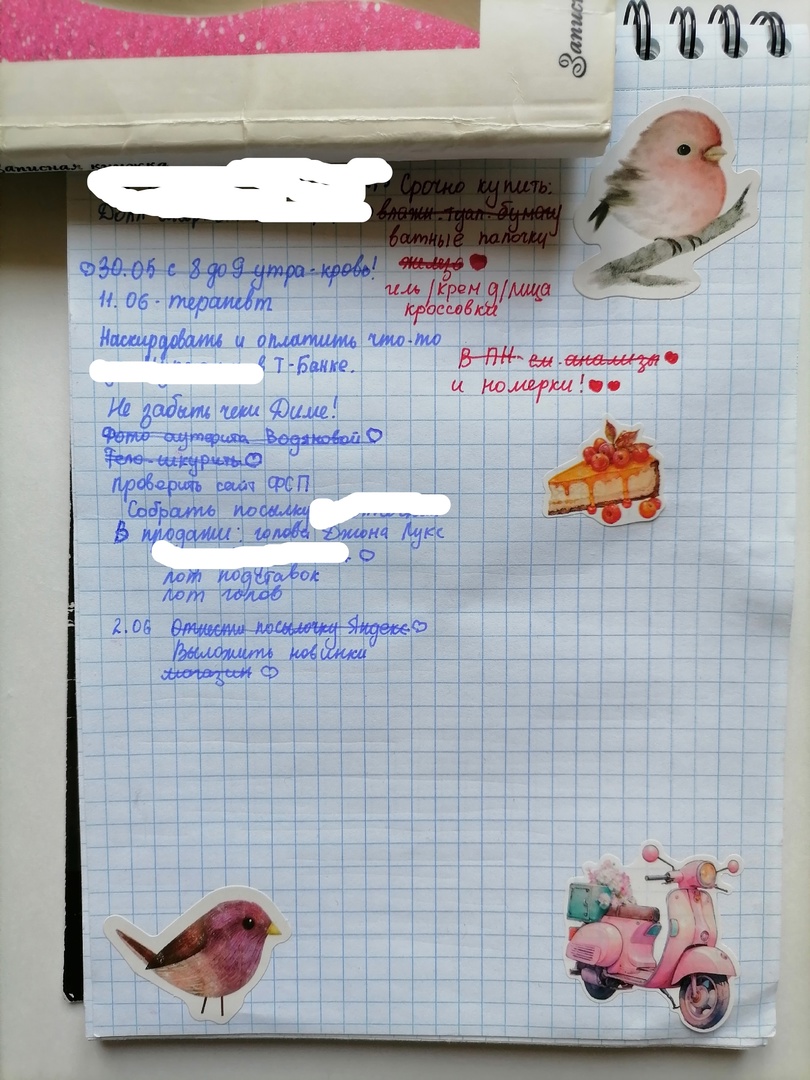 Запис
Записная книжка
Срочно купить:
влажн. туал. бумагу
ватные палочки
железо
гель/крем д/лица
кроссовки
30.05 с 8 до 9 утра - кровь!
11.06 - терапевт
В ПН - ем анализы
и номерки!
Наскирдовать и оплатить что-то
в Т-Банке.
Не забыть чеки Диме!
Фото аутфита Водяновой
Тело шкурить
Проверить сайт ФСП
Собрать посылку
В продажи: голова Джона Лукс
лот подставок
лот голов
2.06 Отнести посылочку Яндекс
Выложить новинки
магазин